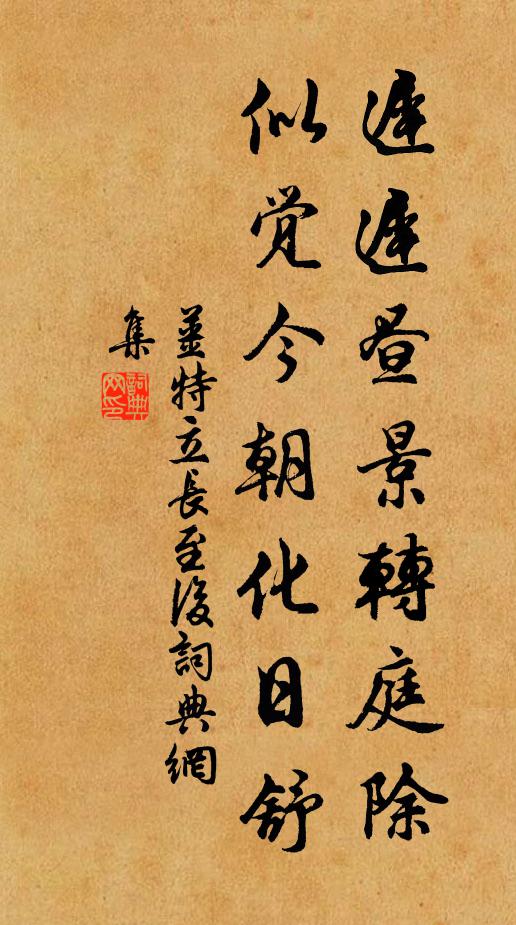 遲遲昼景轉庭除
似覚今朝化日舒
姜特立長至後詞典網
集
詞典網印